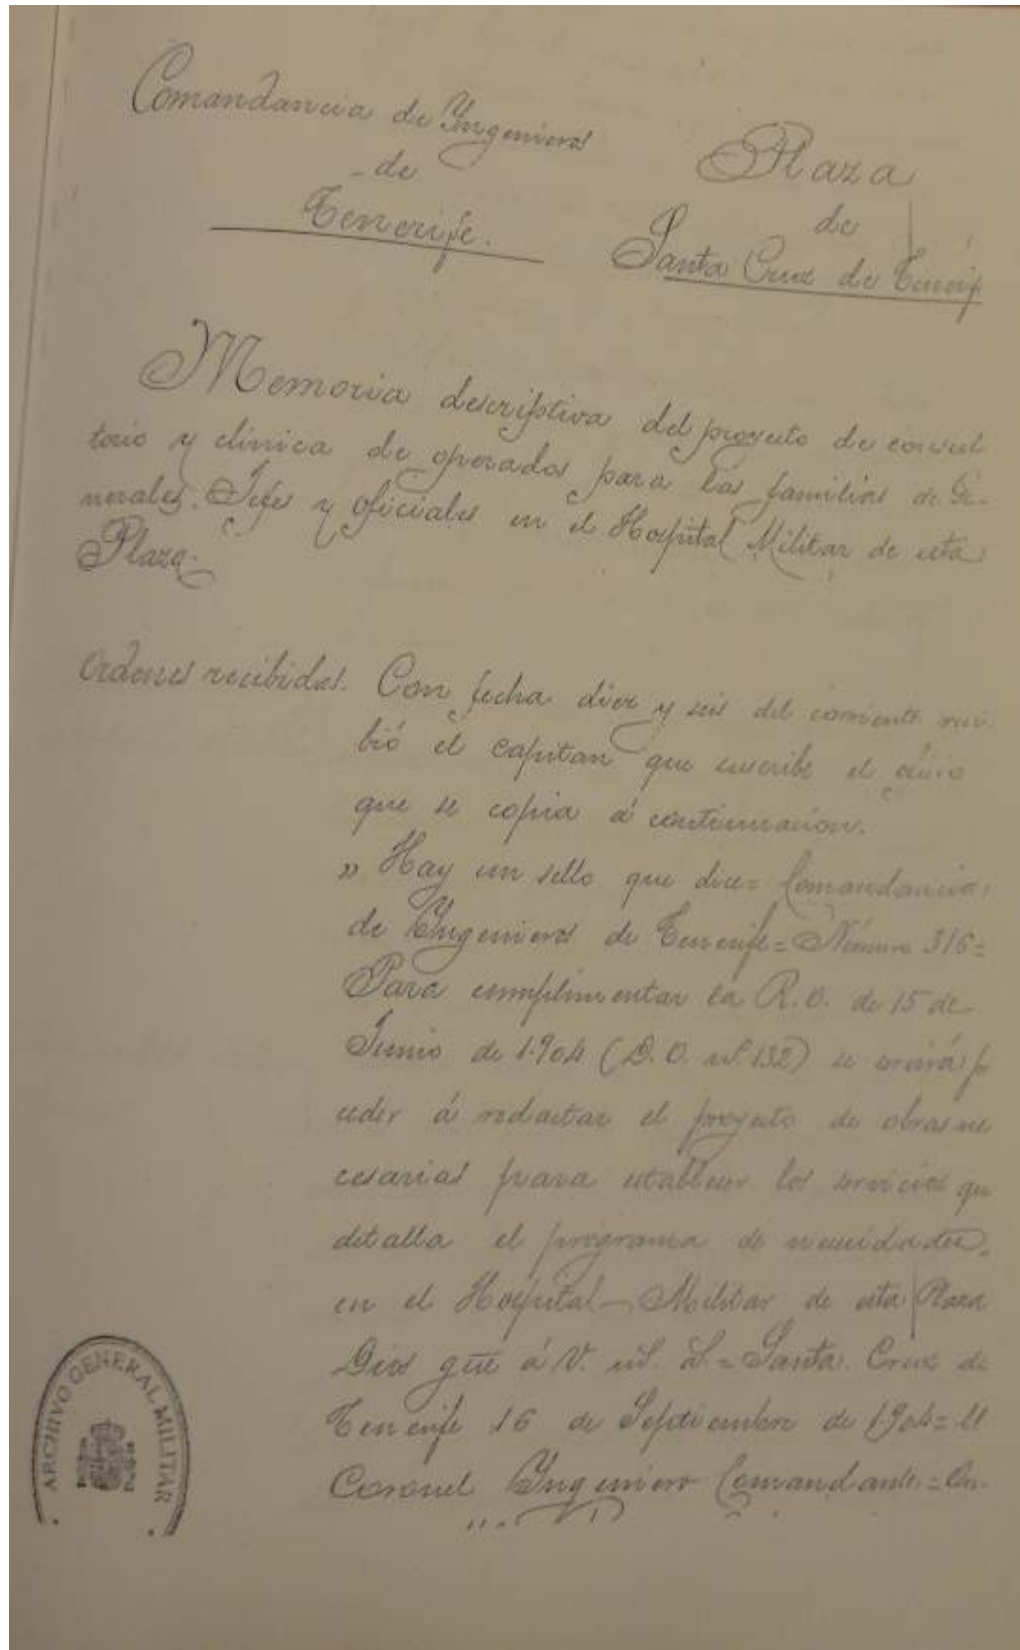 Comandancia de Ingenieros
de
Tenerife.
Plaza
de
Santa Cruz de Tenerif
Memoria descriptiva del proyecto de consul
torio y clínica de operados para las familias de Ge-
nerales. Jefes y oficiales en el Hospital Militar de esta
Plaza.
Ordenes recibidas. Con fecha diez y seis del corriente reci
bió el capitan que suscribe el oficio
que se copia á continuacion.
» Hay un sello que dice= Comandancia
de Ingenieros de Tenerife= Número 316=
Para cumplimentar la R.O. de 15 de
Junio de 1904 (D.O. nº. 132) se servirá pro
ceder á redactar el proyecto de obras ne
cesarias para establecer los servicios que
detalla el programa de necesidades,
en el Hospital-Militar de esta Plaza
Dios gūe á V. ms. as.= Santa Cruz de
Tenerife 16 de Septiembre de 1904= El
Coronel Ingeniero Comandante.=
ARCHIVO GENERAL MILITAR